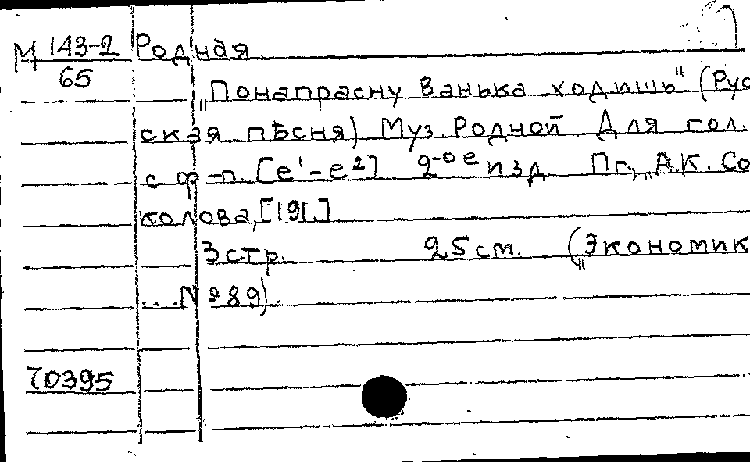 М 143-2 Родная
65
„Понапрасну Ванька ходишь" (Рус
ская пѣсня) Муз. Родной. Для гол.
с ф-п. [e¹-e²] 2-ое изд. Пг., А.К. Со
колова, [191.]
3 стр. 25 см. („Экономик
... № 89).
70395